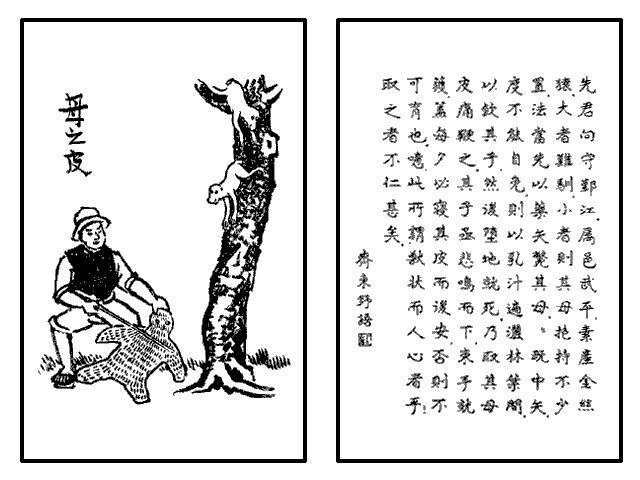 母之皮
先君向守鄞江.属邑武平.素產金絲
猿.大者難馴.小者則其母抱持不少
置.法當先以藥矢斃其母.〻既中矢.
度不能自免.則以乳汁遍灑林葉間.
以飲其子.然後墮地就死.乃取其母
皮痛鞭之.其子亟悲鳴而下.束手就
獲.蓋每夕必寢其皮而後安.否則不
可育也.噫此所謂獸狀而人心者乎!
取之者不仁甚矣.
齊東野語